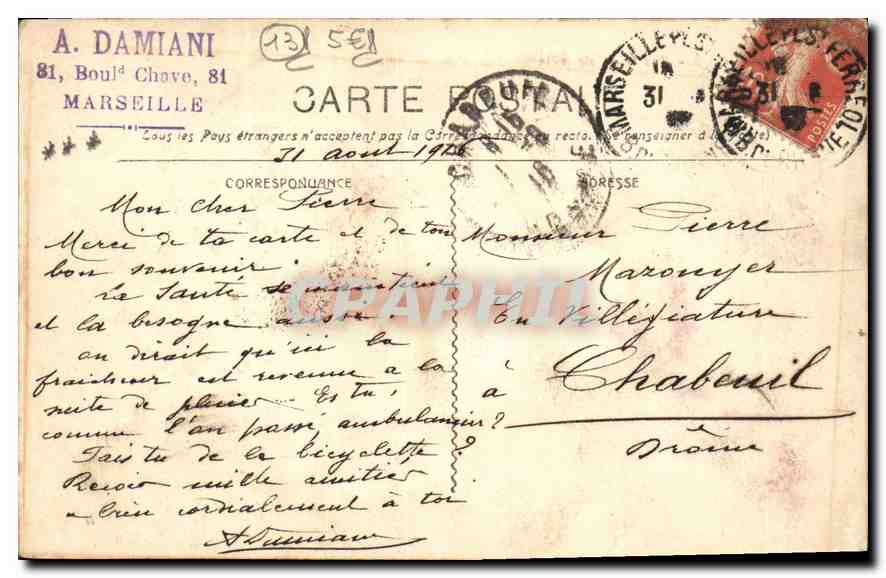 A. DAMIANI
81, Boulᵈ Chave, 81
MARSEILLE
13 5€
CARTE POSTALE
Tous les Pays étrangers n'acceptent pas la Correspondance au recto. Se renseigner à la Poste)
31 août 19
CORRESPONDANCE
Mon cher Pierre
Merci de ta carte et de ton
bon souvenir
La santé se maintient
et la besogne aussi
on dirait qu'ici la
fraicheur est revenue a la
suite de pluies. Es tu,
comme l'an passé ambulancier?
Fais tu de la bicyclette?
Reçois mille amitiés
bien cordialement à toi
A Damiani
ADRESSE
Monsieur Pierre
Mazouyer
En Villégiature
à Chabeuil
Drôme
MARSEILLE PL. ST FERREOL
31
MARSEILLE PL. ST FERREOL
31
POSTES
CHABEUIL
16
CRAPHIL